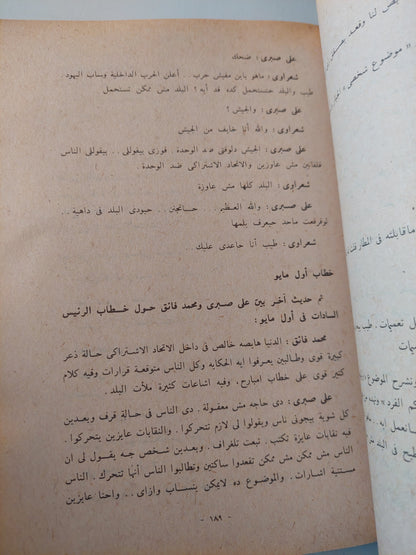 على صبرى : ضحك
شعراوى : ماهو باين مفيش حرب . . أعلن الحرب الداخلية وساب اليهود .
طيب والبلد حتستحمل كده قد أيه ؟ البلد مش ممكن تستحمل
على صبرى : والجيش ؟
شعراوى : والله أنا خايف من الجيش
على صبرى : الجيش دلوقتى ضد الوحدة . فوزى بيقولى . . بيقولى الناس
قلقانين مش عاوزين والاتحاد الاشتراكى ضد الوحدة
شعراوى : البلد كلها مش عاوزة
على صبرى : والله العظيم . . . حيودى البلد فى داهية . .
لوفرقعت ماحد حيعرف يلمها
شعراوى : طيب أنا حاعدى عليك . .
خطاب أول مايو
ثم حديث آخر بين على صبرى ومحمد فائق حول خطاب الرئيس
السادات فى أول مايو :
محمد فائق : الدنيا هايصه خالص فى داخل الاتحاد الاشتراكى حالة ذعر
كبيرة قوى وطالبين يعرفوا ايه الحكايه وكل الناس متوقعة قرارات وفيه كلام
كتير قوى على خطاب امبارح . وفيه اشاعات كتيرة ملأت البلد .
على صبرى : دى حاجه مش معقولة . دى الناس فى حالة قرف وبعدين
كل شوية بيجونى ناس ويقولوا لى لازم نتحركوا . والنقابات عايزين يتحركوا .
فيه نقابات عايزة تكتب . تبعت تلغراف . وبعدين شخص جه يقول لى ان
الناس مش ممكن مش ممكن تقعدوا ساكتين وتطالبوا الناس أنها تتحرك . الناس
مستنية اشارات . والموضوع ده لايمكن يتساب وازاى . . واحنا عايزين
- ١٨٩ -
موضوع شخصى